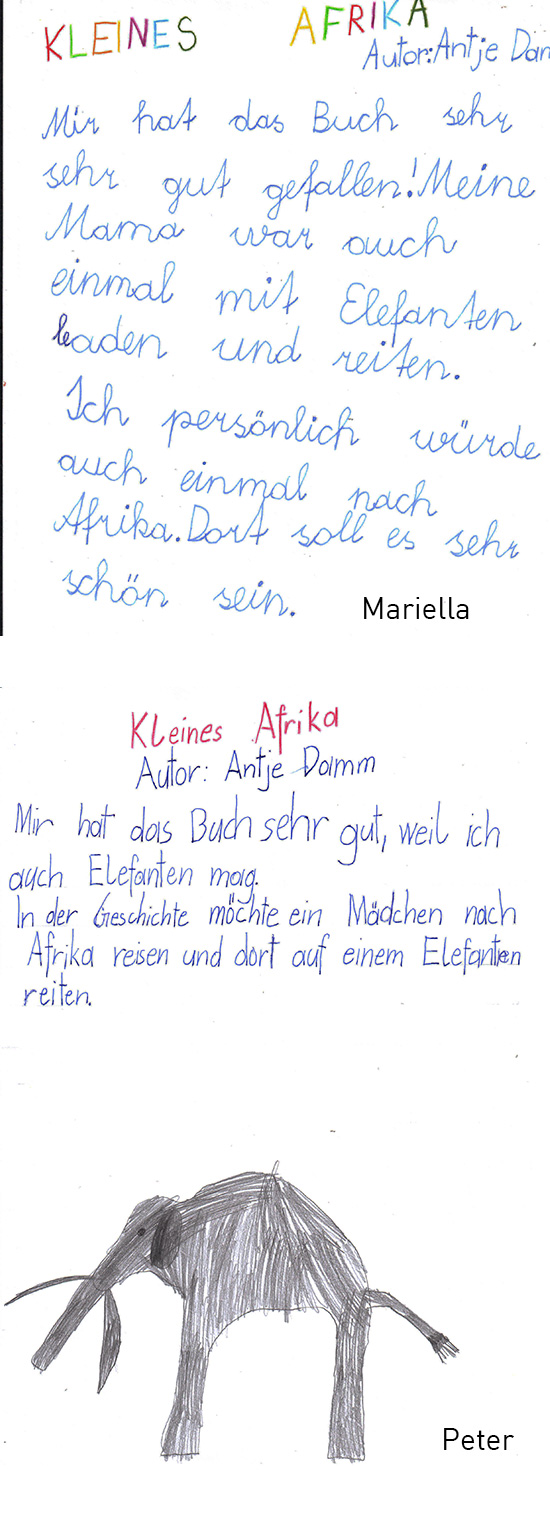 KLEINES AFRIKA
Autor: Antje Dam
Mir hat das Buch sehr
sehr gut gefallen! Meine
Mama war auch
einmal mit Elefanten
baden und reiten.
Ich persönlich würde
auch einmal nach
Afrika. Dort soll es sehr
schön sein.
Mariella
Kleines Afrika
Autor: Antje Damm
Mir hat das Buch sehr gut, weil ich
auch Elefanten mag.
In der Geschichte möchte ein Mädchen nach
Afrika reisen und dort auf einem Elefanten
reiten.
Peter